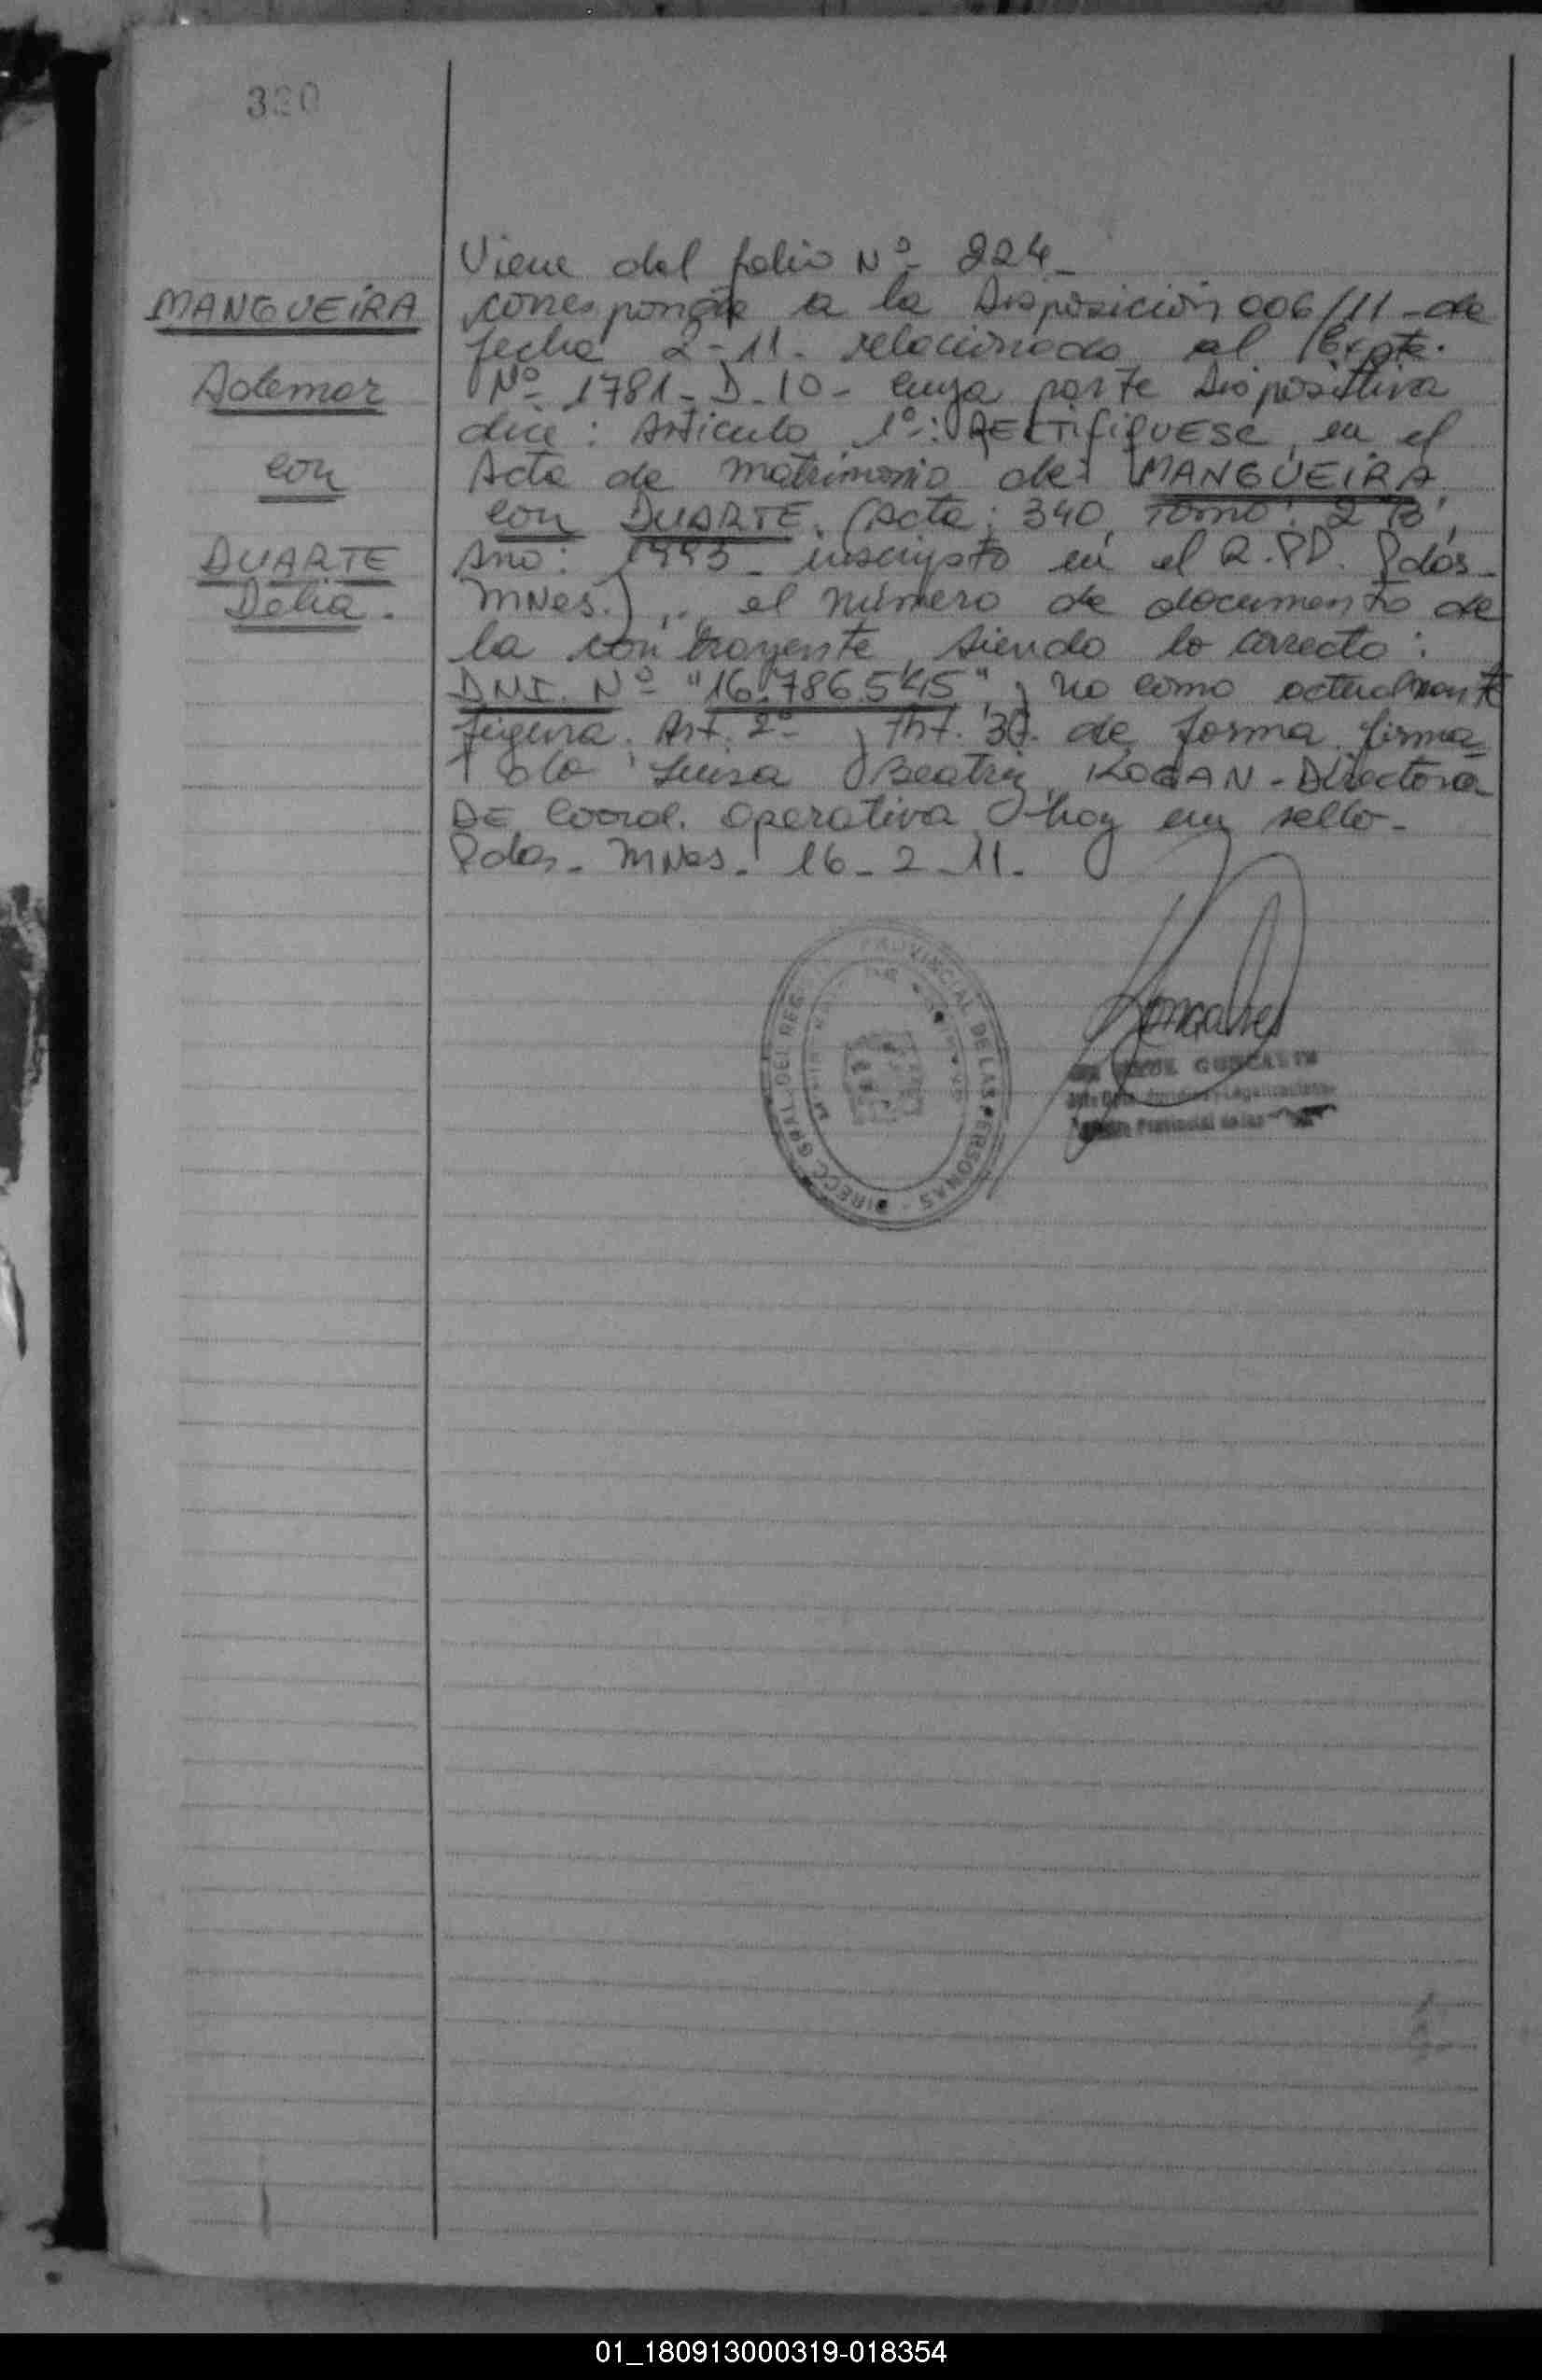 320
Viene del folio Nº 224_
MANGUEIRA
Ademar
con
DUARTE
Delia.
corresponde a la Disposición 006/11 - de
fecha 2-11. relacionada al Expte.
Nº 1781-D-10- cuya parte Dispositiva
dice: Articulo 1º: RECTIFIQUESE, en el
Acta de matrimonio de: MANGUEIRA
con DUARTE. (Acta: 340, Tomo: 2 "B",
Año: 1993 - inscripto en el R.P.D. Pdas_
MNes.), .. el número de documento de
la contrayente, siendo lo correcto:
DNI. Nº "16.786.545", y no como actualmente
figura. Art. 2º y Art. 3º. de forma. firma=
do Luisa Beatriz KOGAN - Directora
DE Coord. Operativa, hay un sello-
Pdas. MNes. 16-2-11.
DIRECC. GRAL. DEL REG. PROVINCIAL DE LAS PERSONAS
Goncalves
Provincial de las
01_180913000319-018354